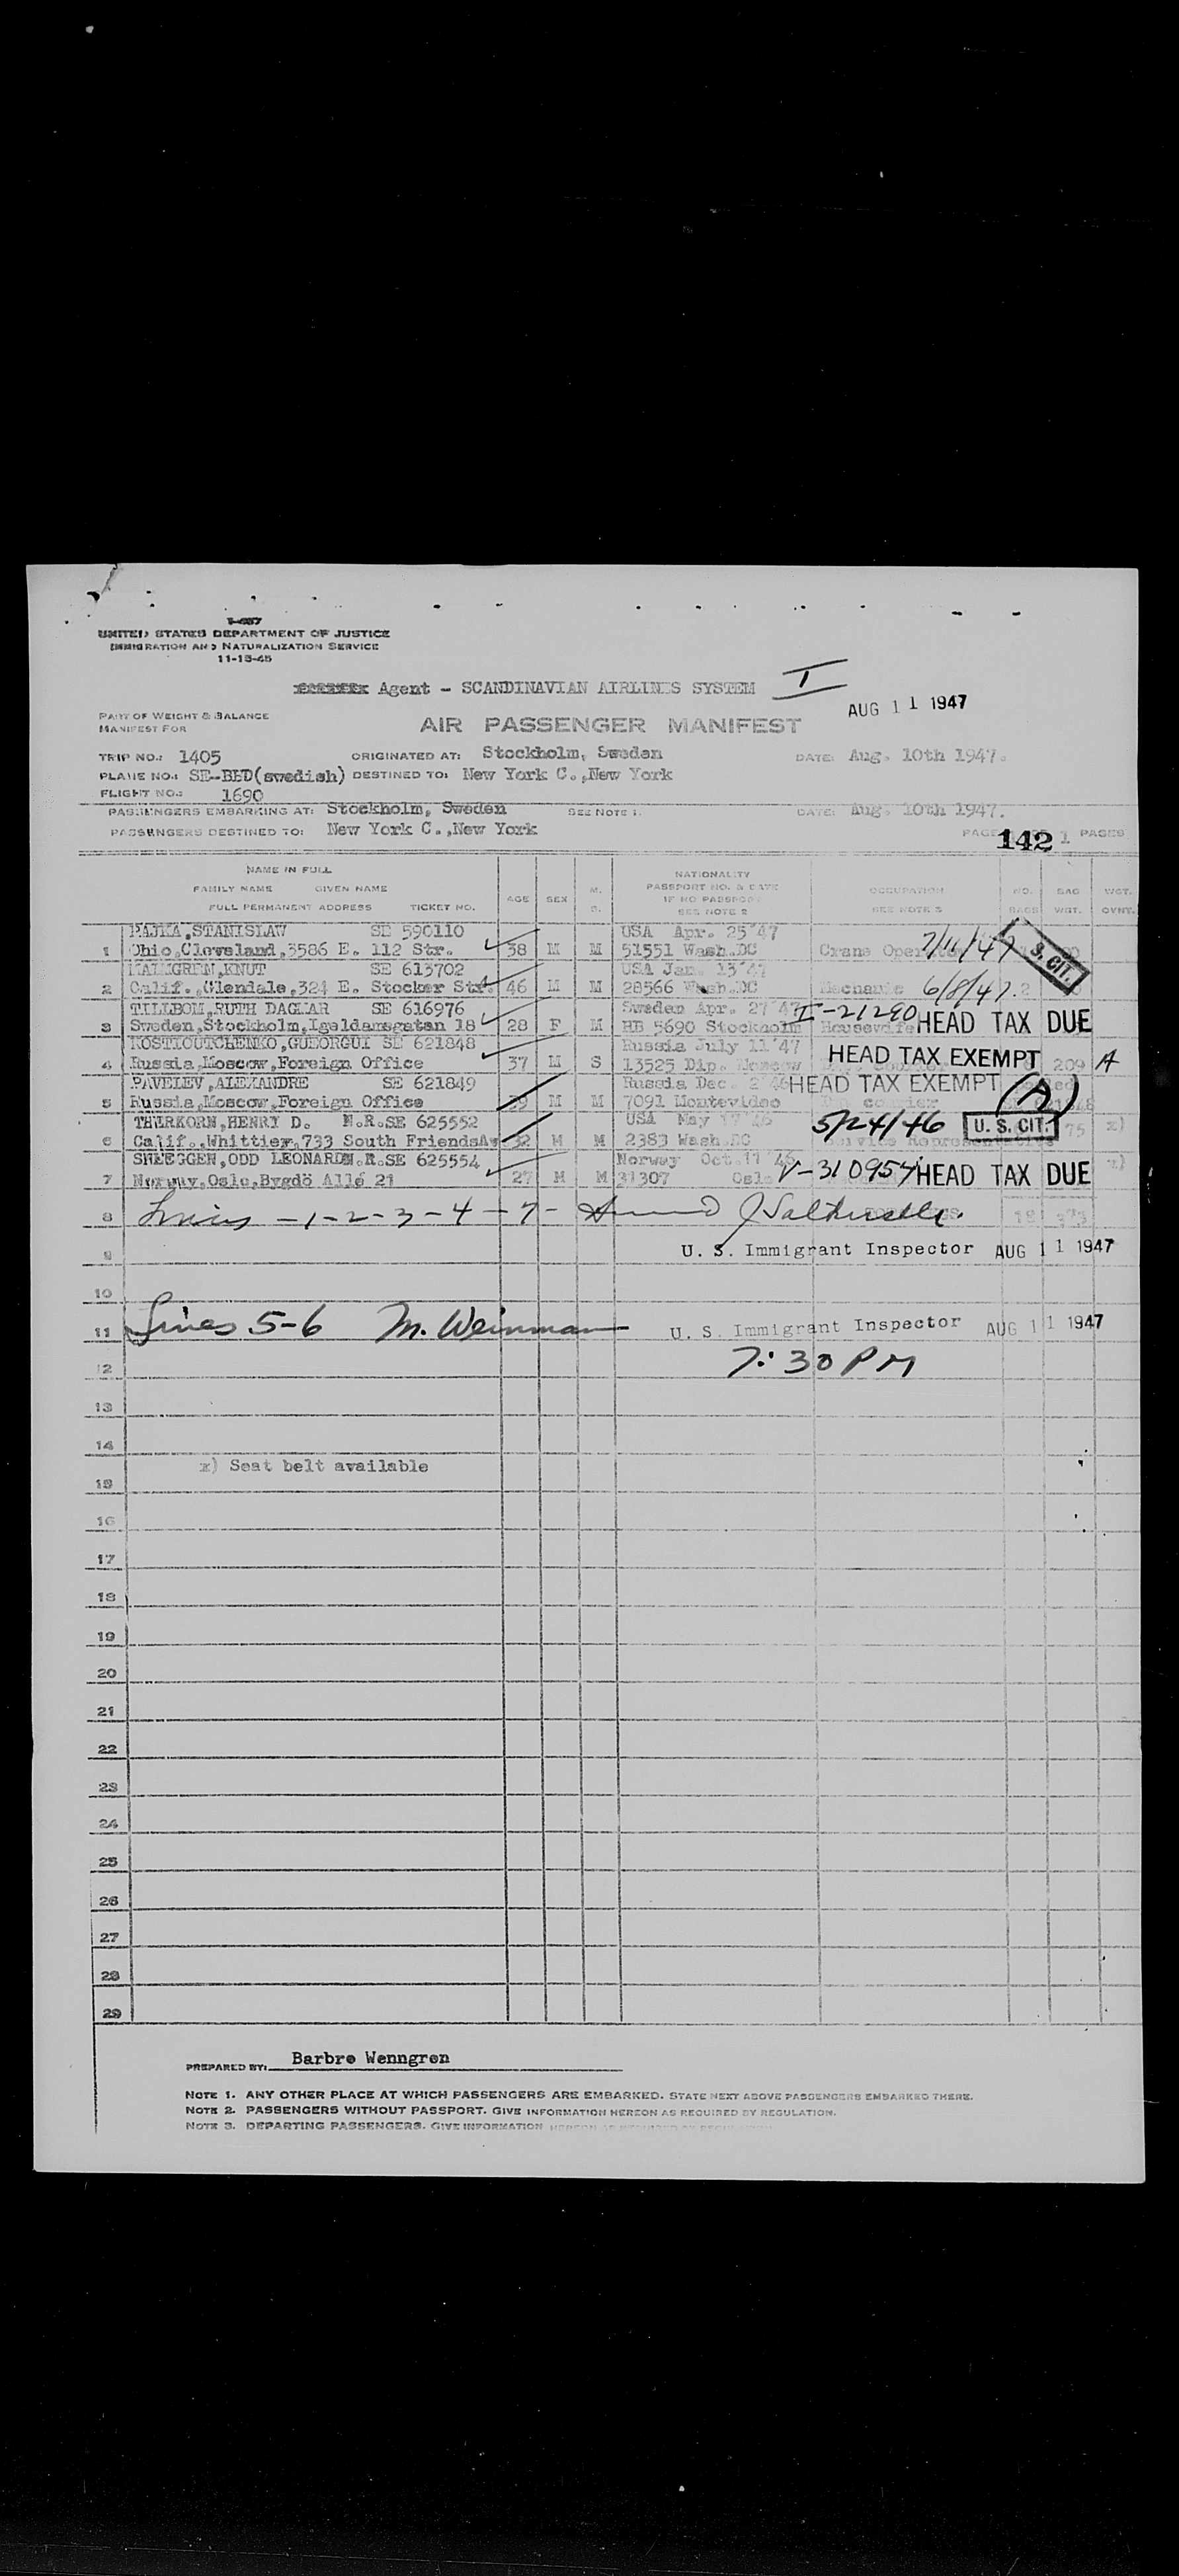 I-457
UNITED STATES DEPARTMENT OF JUSTICE
IMMIGRATION AND NATURALIZATION SERVICE
11-15-45
Agent - SCANDINAVIAN AIRLINES SYSTEM I
AUG 11 1947
PART OF WEIGHT & BALANCE
MANIFEST FOR
AIR PASSENGER MANIFEST
TRIP NO.: 1405 ORIGINATED AT: Stockholm, Sweden DATE: Aug. 10th 1947.
PLANE NO.: SE-BED(swedish) DESTINED TO: New York C.,New York
FLIGHT NO.: 1690
PASSENGERS EMBARKING AT: Stockholm, Sweden SEE NOTE 1. DATE: Aug. 10th 1947.
PASSENGERS DESTINED TO: New York C.,New York PAGE 142 1 PAGES
NAME IN FULL
FAMILY NAME GIVEN NAME
FULL PERMANENT ADDRESS TICKET NO.
AGE SEX M. S.
NATIONALITY
PASSPORT NO. & DATE
IF NO PASSPORT
SEE NOTE 2
OCCUPATION
SEE NOTE 3
NO. BAGS BAG. WGT. WGT. OVNT.
RAJKA,STANISLAW SE 590110 USA Apr. 25'47
1 Ohio,Cleveland,3586 E. 112 Str. 38 M M 51551 Wash.DC Crane Operator 7/11/47 S. CIT.
MALMGREN,KNUT SE 613702 USA Jan. 13'47
2 Calif.,Glendale,324 E. Stocker Str. 46 M M 28566 Wash.DC Mechanic 6/8/47. 2
TILLBOM,RUTH DAGMAR SE 616976 Sweden Apr. 27'47 I-21290
3 Sweden,Stockholm,Igeldamsgatan 18 28 F M HB 5690 Stockholm Housewife HEAD TAX DUE
KOSTIOUTCHENKO,GUEORGUI SE 621848 Russia July 11'47
4 Russia,Moscow,Foreign Office 37 M S 13525 Dip. Moscow HEAD TAX EXEMPT 209 A
PAVELEV,ALEXANDRE SE 621849 Russia Dec. 2'46 HEAD TAX EXEMPT (A)
5 Russia,Moscow,Foreign Office 29 M M 7091 Montevideo courier
THERKORN,HENRY D. N.R.SE 625552 USA May 17'46 5/24/46 U. S. CIT.
6 Calif.,Whittier,733 South FriendsAv 32 M M 2383 Wash.DC Service Representative 75 x)
SNEEGGEN,ODD LEONARDN.R.SE 625554 Norway Oct.11'46 V-310954 HEAD TAX DUE x)
7 Norway,Oslo,Bygdö Allé 21 27 M M 31307 Oslo
8 Lines -1-2-3-4-7- 18 373
9 U. S. Immigrant Inspector AUG 11 1947
10
11 Lines 5-6 M. Weinman U. S. Immigrant Inspector AUG 11 1947
12 7:30 PM
13
14
x) Seat belt available
15
16
17
18
19
20
21
22
23
24
25
26
27
28
29
PREPARED BY: Barbro Wenngren
NOTE 1. ANY OTHER PLACE AT WHICH PASSENGERS ARE EMBARKED. STATE NEXT ABOVE PASSENGERS EMBARKED THERE.
NOTE 2. PASSENGERS WITHOUT PASSPORT. GIVE INFORMATION HEREON AS REQUIRED BY REGULATION.
NOTE 3. DEPARTING PASSENGERS. GIVE INFORMATION HEREON AS REQUIRED BY REGULATION.